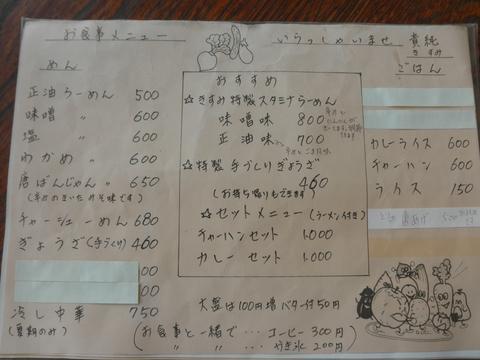 お食事メニュー
いらっしゃいませ 貴純
きすみ
めん
正油らーめん 500
味噌 〃 600
塩 〃 600
わかめ 〃 600
唐ばんじゃん 〃 650
チャーシューめん 680
ぎょうざ(手づくり) 460
00
00
冷し中華 750
(夏期のみ)
おすすめ
☆きすみ特製スタミナらーめん
味噌味 800
正油味 700
☆特製手づくりぎょうざ
460
(お持ち帰りもできます)
☆セットメニュー(ラーメン付き)
チャーハンセット 1.000
カレーセット 1.000
ごはん
カレーライス 600
チャーハン 600
ライス 150
大盛は100円増 バター付50円
(お食事と一緒で…コーヒー 300円
〃 〃 … かき氷 200円)